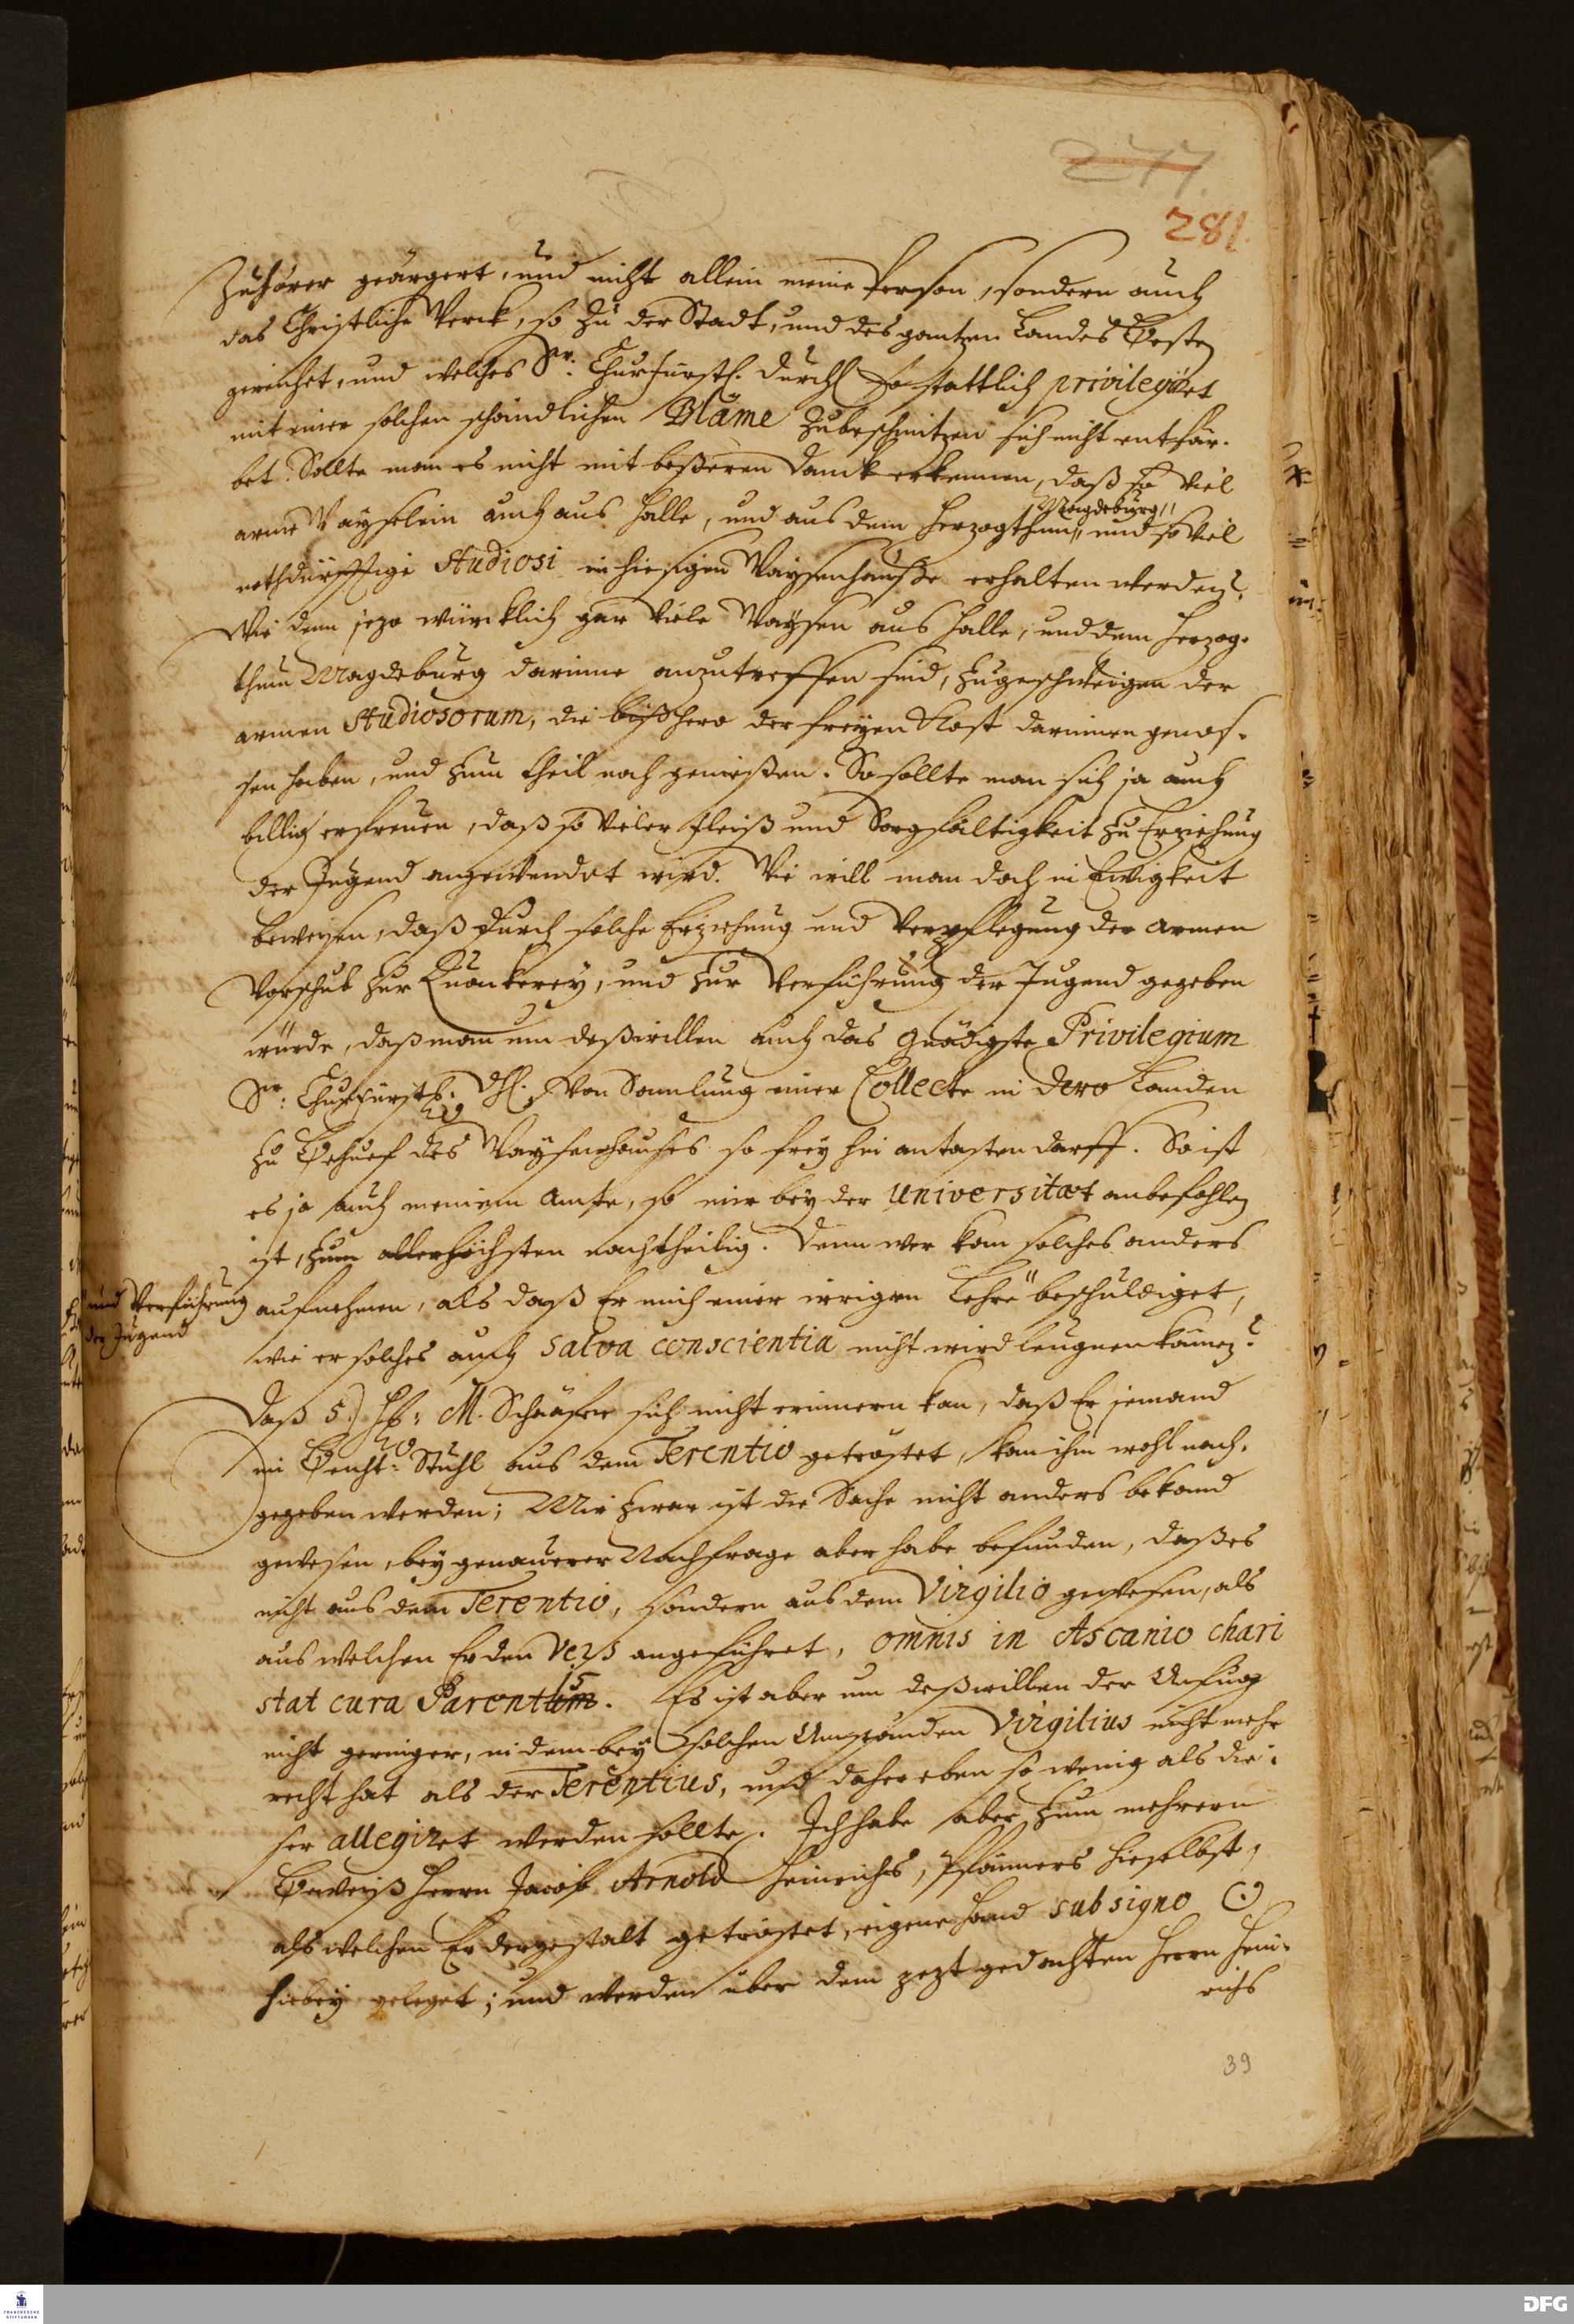 277.
281.
Zuhörer geärgert, und nicht allein meine Person, sondern auch
das Christliche Werck, so zu der Stadt, und des gantzen Landes Besten
gereichet, und welches Sr. Churfürstl. Durchl. so stattlich privilegiret
mit einer solchen schändlichen Blâme zubeschmitzen sich nicht entfär-
bet. Sollte man es nicht mit beßeren Danck erkennen, daß so viel
arme Wayselein auch aus Halle, und aus dem Herzogthum Magdeburg, und so viel
nothdürfftige Studiosi in hiesigen Waysenhauße erhalten werden?
Wie denn jezo würcklich gar viele Waysen aus Halle, und dem Herzog-
thum Magdeburg darinne anzutreffen sind, zugeschweigen der
armen Studiosorum, die bißhero der freyen Kost darinnen genos-
sen haben, und zum theil noch genießen. So sollte man sich ja auch
billig erfreuen, daß so vieler Fleiß und Sorgfältigkeit zu Erziehung
der Jugend angewendet wird. Wie will man doch in Ewigkeit
beweisen, daß durch solche Erziehung und Verpflegung der armen
Vorschub zur Quackerey, und zur Verführung der Jugend gegeben
würde, daß man um deßwillen auch das gnädigste Privilegium
Sr. Churfürstl. Dchl. von Samlung einer Collecte in Dero Landen
zu Behuef des Waysenhauses so frey hin antasten darff. So ist
es ja auch meinem Amte, so mir bey der Universitæt anbefohlen
ist, zum allerhöchsten nachtheilig. Denn wer kan solches anders
aufnehmen, als daß Er mich einer irrigen Lehre beschuldiget,
und Verführung
der Jugend
wie er solches auch salva conscientia nicht wird leugnen können?
Daß 5.) H. M. Schräfer sich nicht erinnern kan, daß Er jemand
im Beicht-Stuhl aus dem Terentio getröstet, kan ihm wohl nach-
gegeben werden; Mir zwar ist die Sache nicht anders bekand
gewesen, bey genauerer Nachfrage aber habe befunden, daß es
nicht aus dem Terentio, sondern aus dem Virgilio gewesen, als
aus welchen Er den Verß angeführet, omnis in Ascanio chari
stat cura Parentis. Es ist aber um deßwillen der Unfug
nicht geringer, in dem bey solchen Umständen Virgilius nicht mehr
recht hat als der Terentius, und daher eben so wenig als die-
ser allegiret werden sollte. Ich habe aber zum mehrern
Beweiß Herrn Jacob Arnold Heinrichs, Pfänners hieselbst,
als welchen Er dergestalt getröstet, eigene Hand sub signo ☉
hiebey geleget; und werden über dem jezt gedachten Herrn Hein-
richs
39
FRANCKESCHE
STIFTUNGEN
DFG